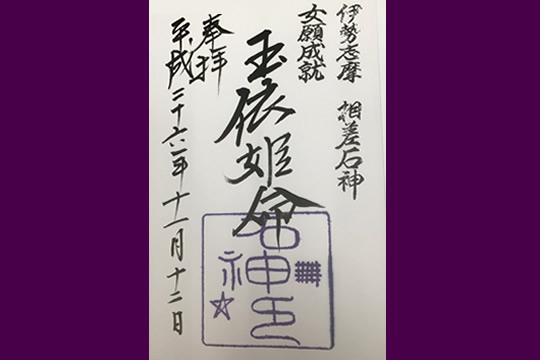 伊勢志摩 相差石神
女願成就
玉依姫命
奉拝
平成二十六年十一月十二日
石神